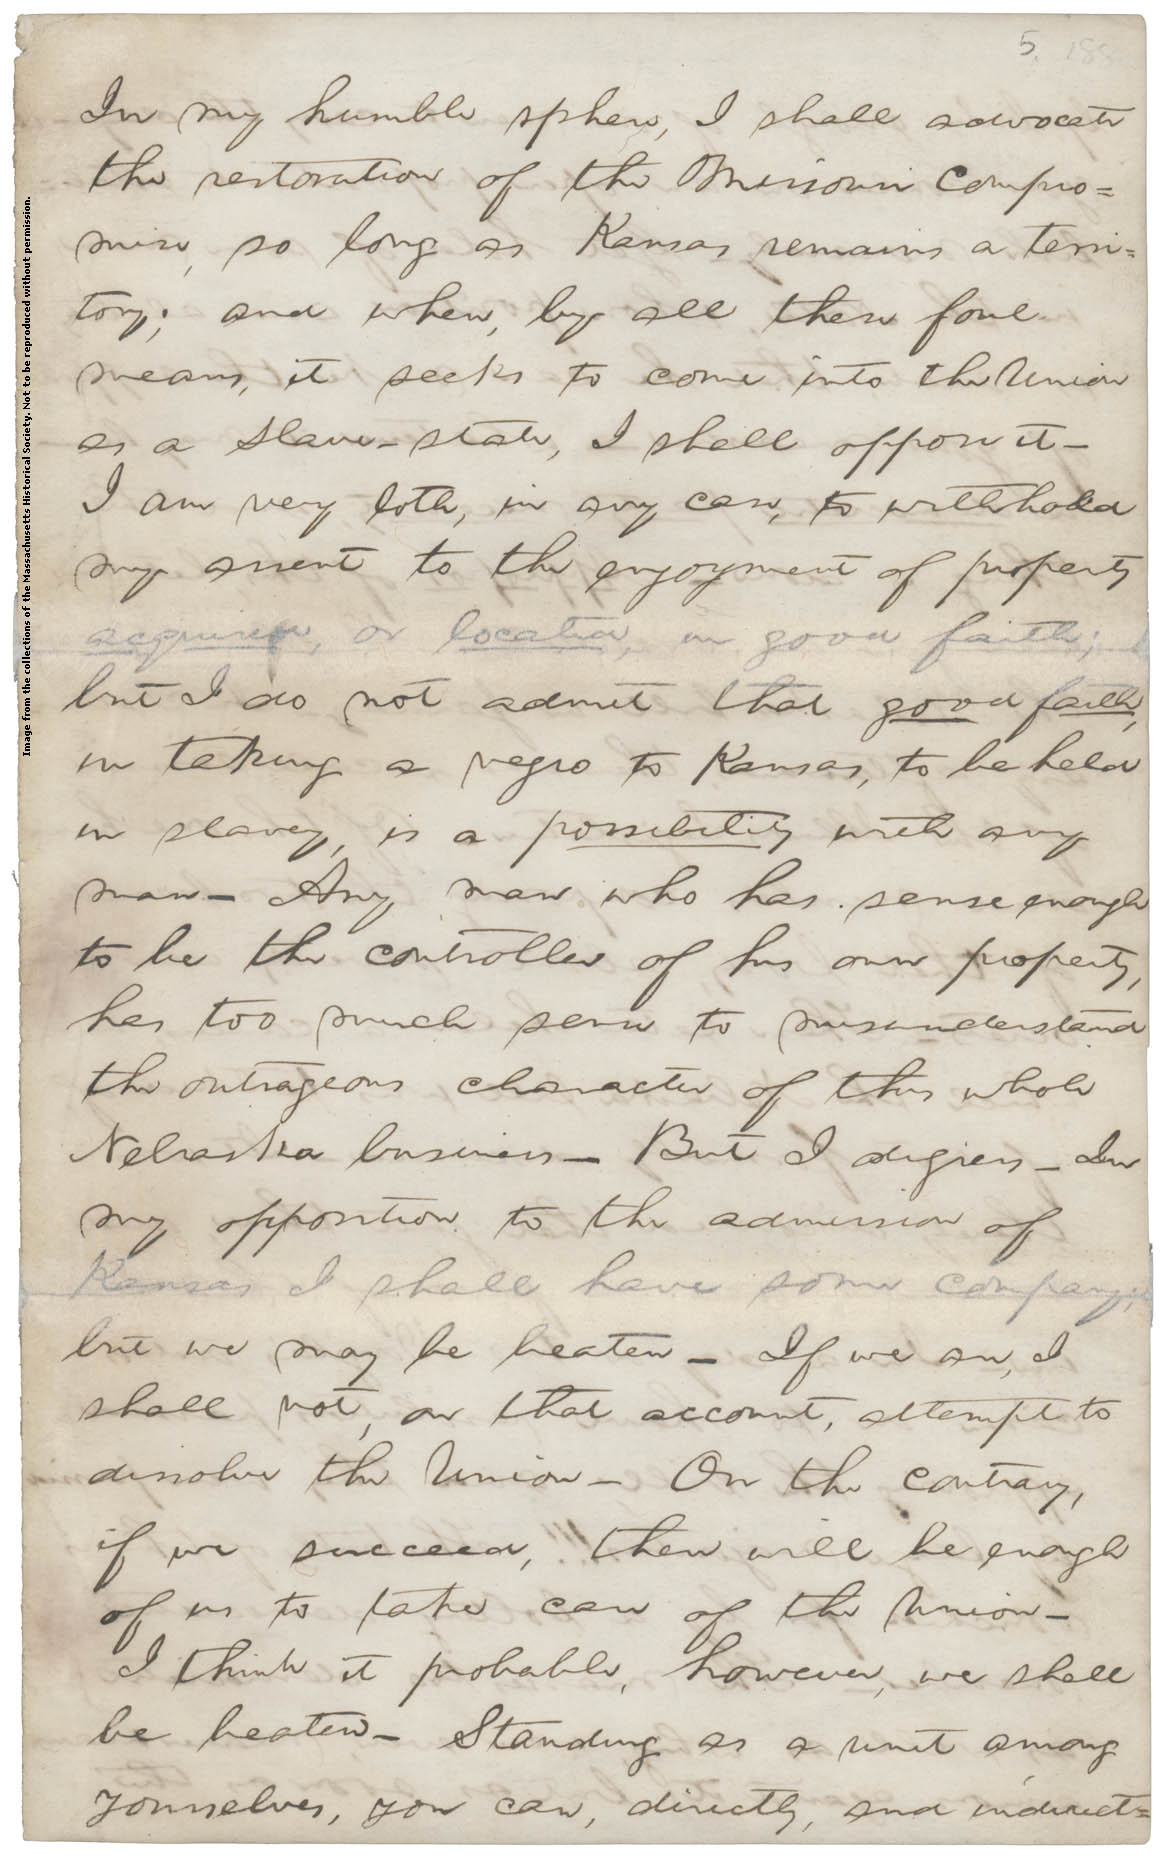 5.
In my humble sphere, I shall advocate
the restoration of the Missouri Compro=
mise, so long as Kansas remains a terri=
tory; and when, by all these foul
means, it seeks to come into the Union
as a Slave-state, I shall oppose it—
I am very loth, in any case, to withhold
my assent to the enjoyment of property
acquired, or located, in good faith;
but I do not admit that good faith,
in taking a negro to Kansas, to be held
in slavery, is a possibility with any
man— Any man who has sense enough
to be the controller of his own property,
has too much sense to misunderstand
the outrageous character of this whole
Nebraska business— But I digress— In
my opposition to the admission of
Kansas I shall have some company;
but we may be beaten— If we are, I
shall not, on that account, attempt to
dissolve the Union— On the contrary,
if we succeed, there will be enough
of us to take care of the Union—
I think it probable, however, we shall
be beaten— Standing as a unit among
yourselves, you can, directly, and indirect=
Image from the collections of the Massachusetts Historical Society. Not to be reproduced without permission.